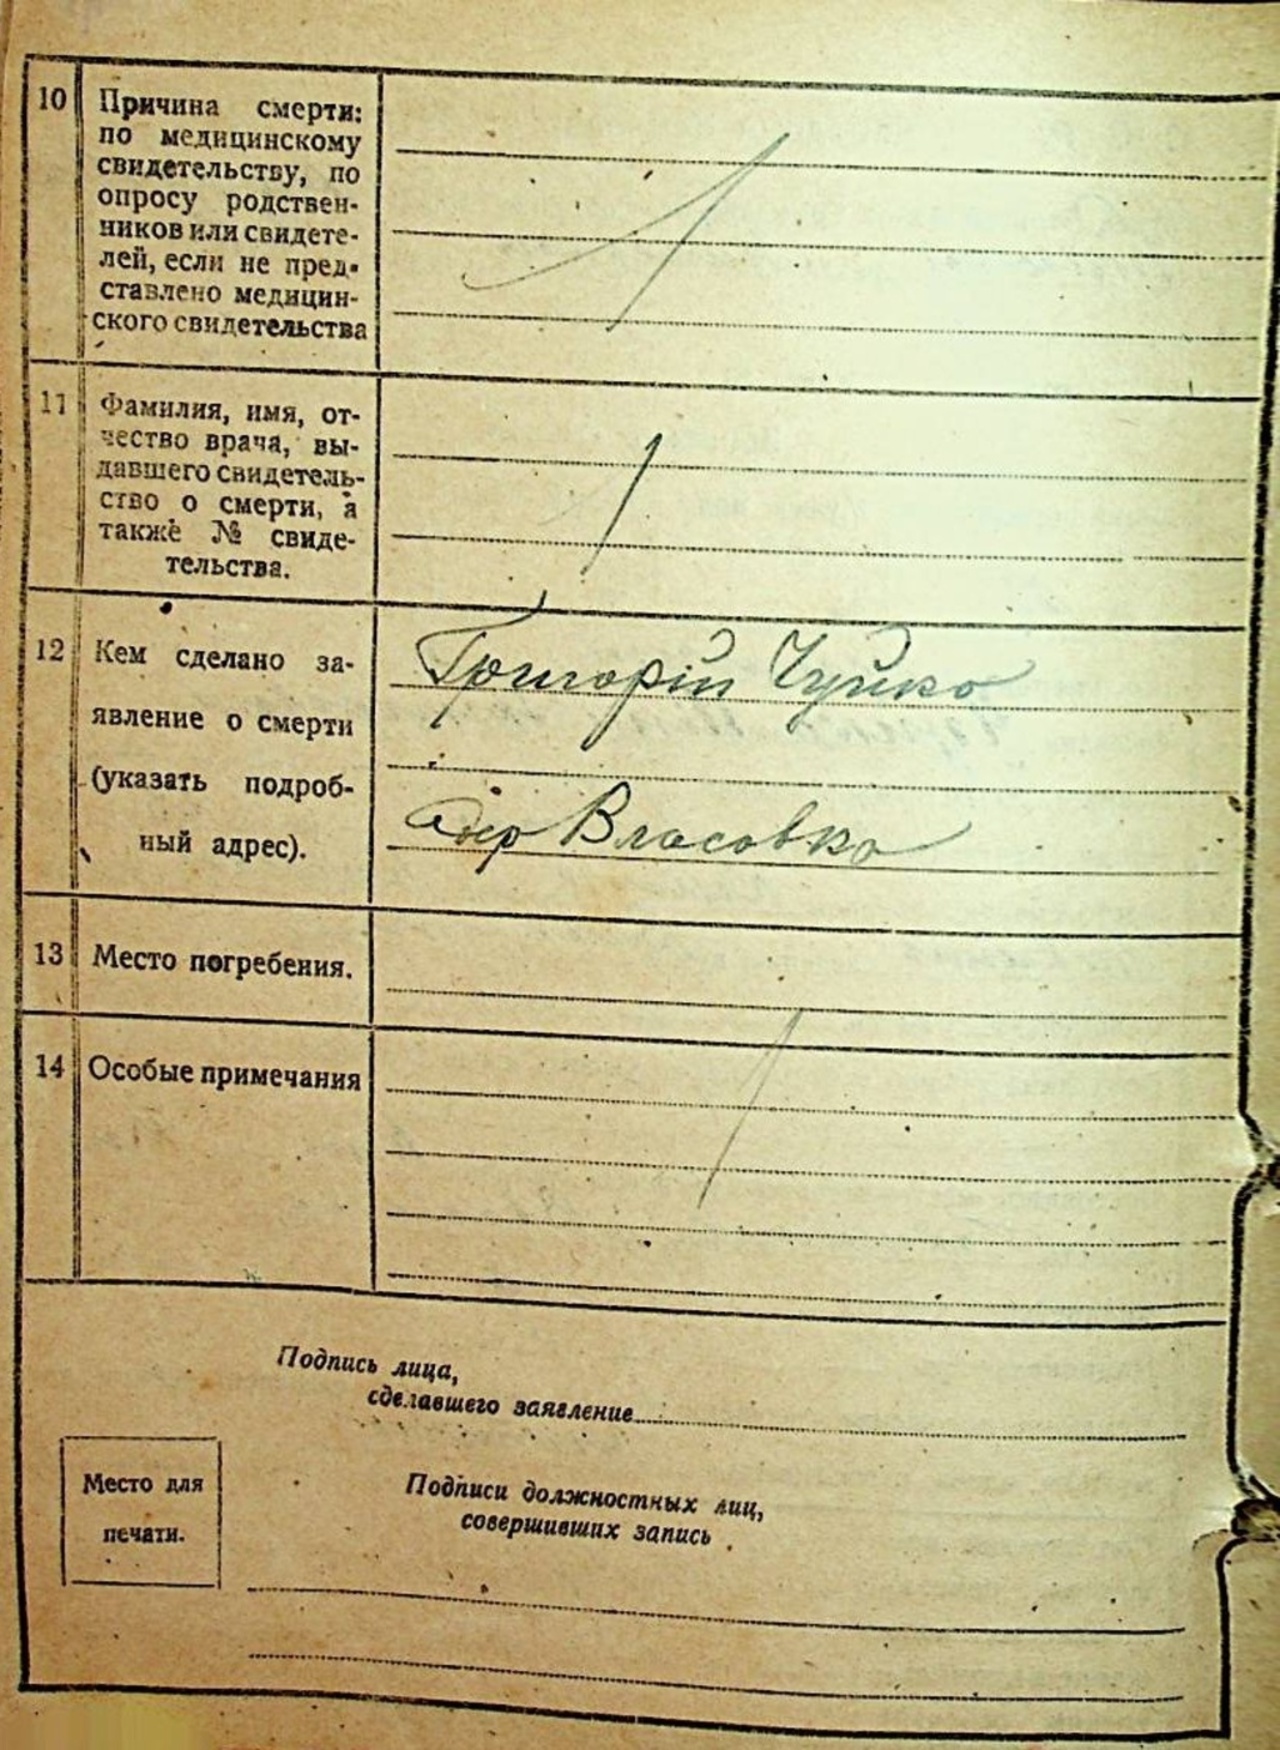 10 Причина смерти:
по медицинскому
свидетельству, по
опросу родствен-
ников или свидете-
лей, если не пред-
ставлено медицин-
ского свидетельства
11 Фамилия, имя, от-
чество врача, вы-
давшего свидетель-
ство о смерти, а
также № свиде-
тельства.
12 Кем сделано за- Григорій Чуйко
явление о смерти
(указать подроб-
ный адрес). Власовка
13 Место погребения.
14 Особые примечания
Подпись лица,
сделавшего заявление
Место для
печати.
Подписи должностных лиц,
совершивших запись